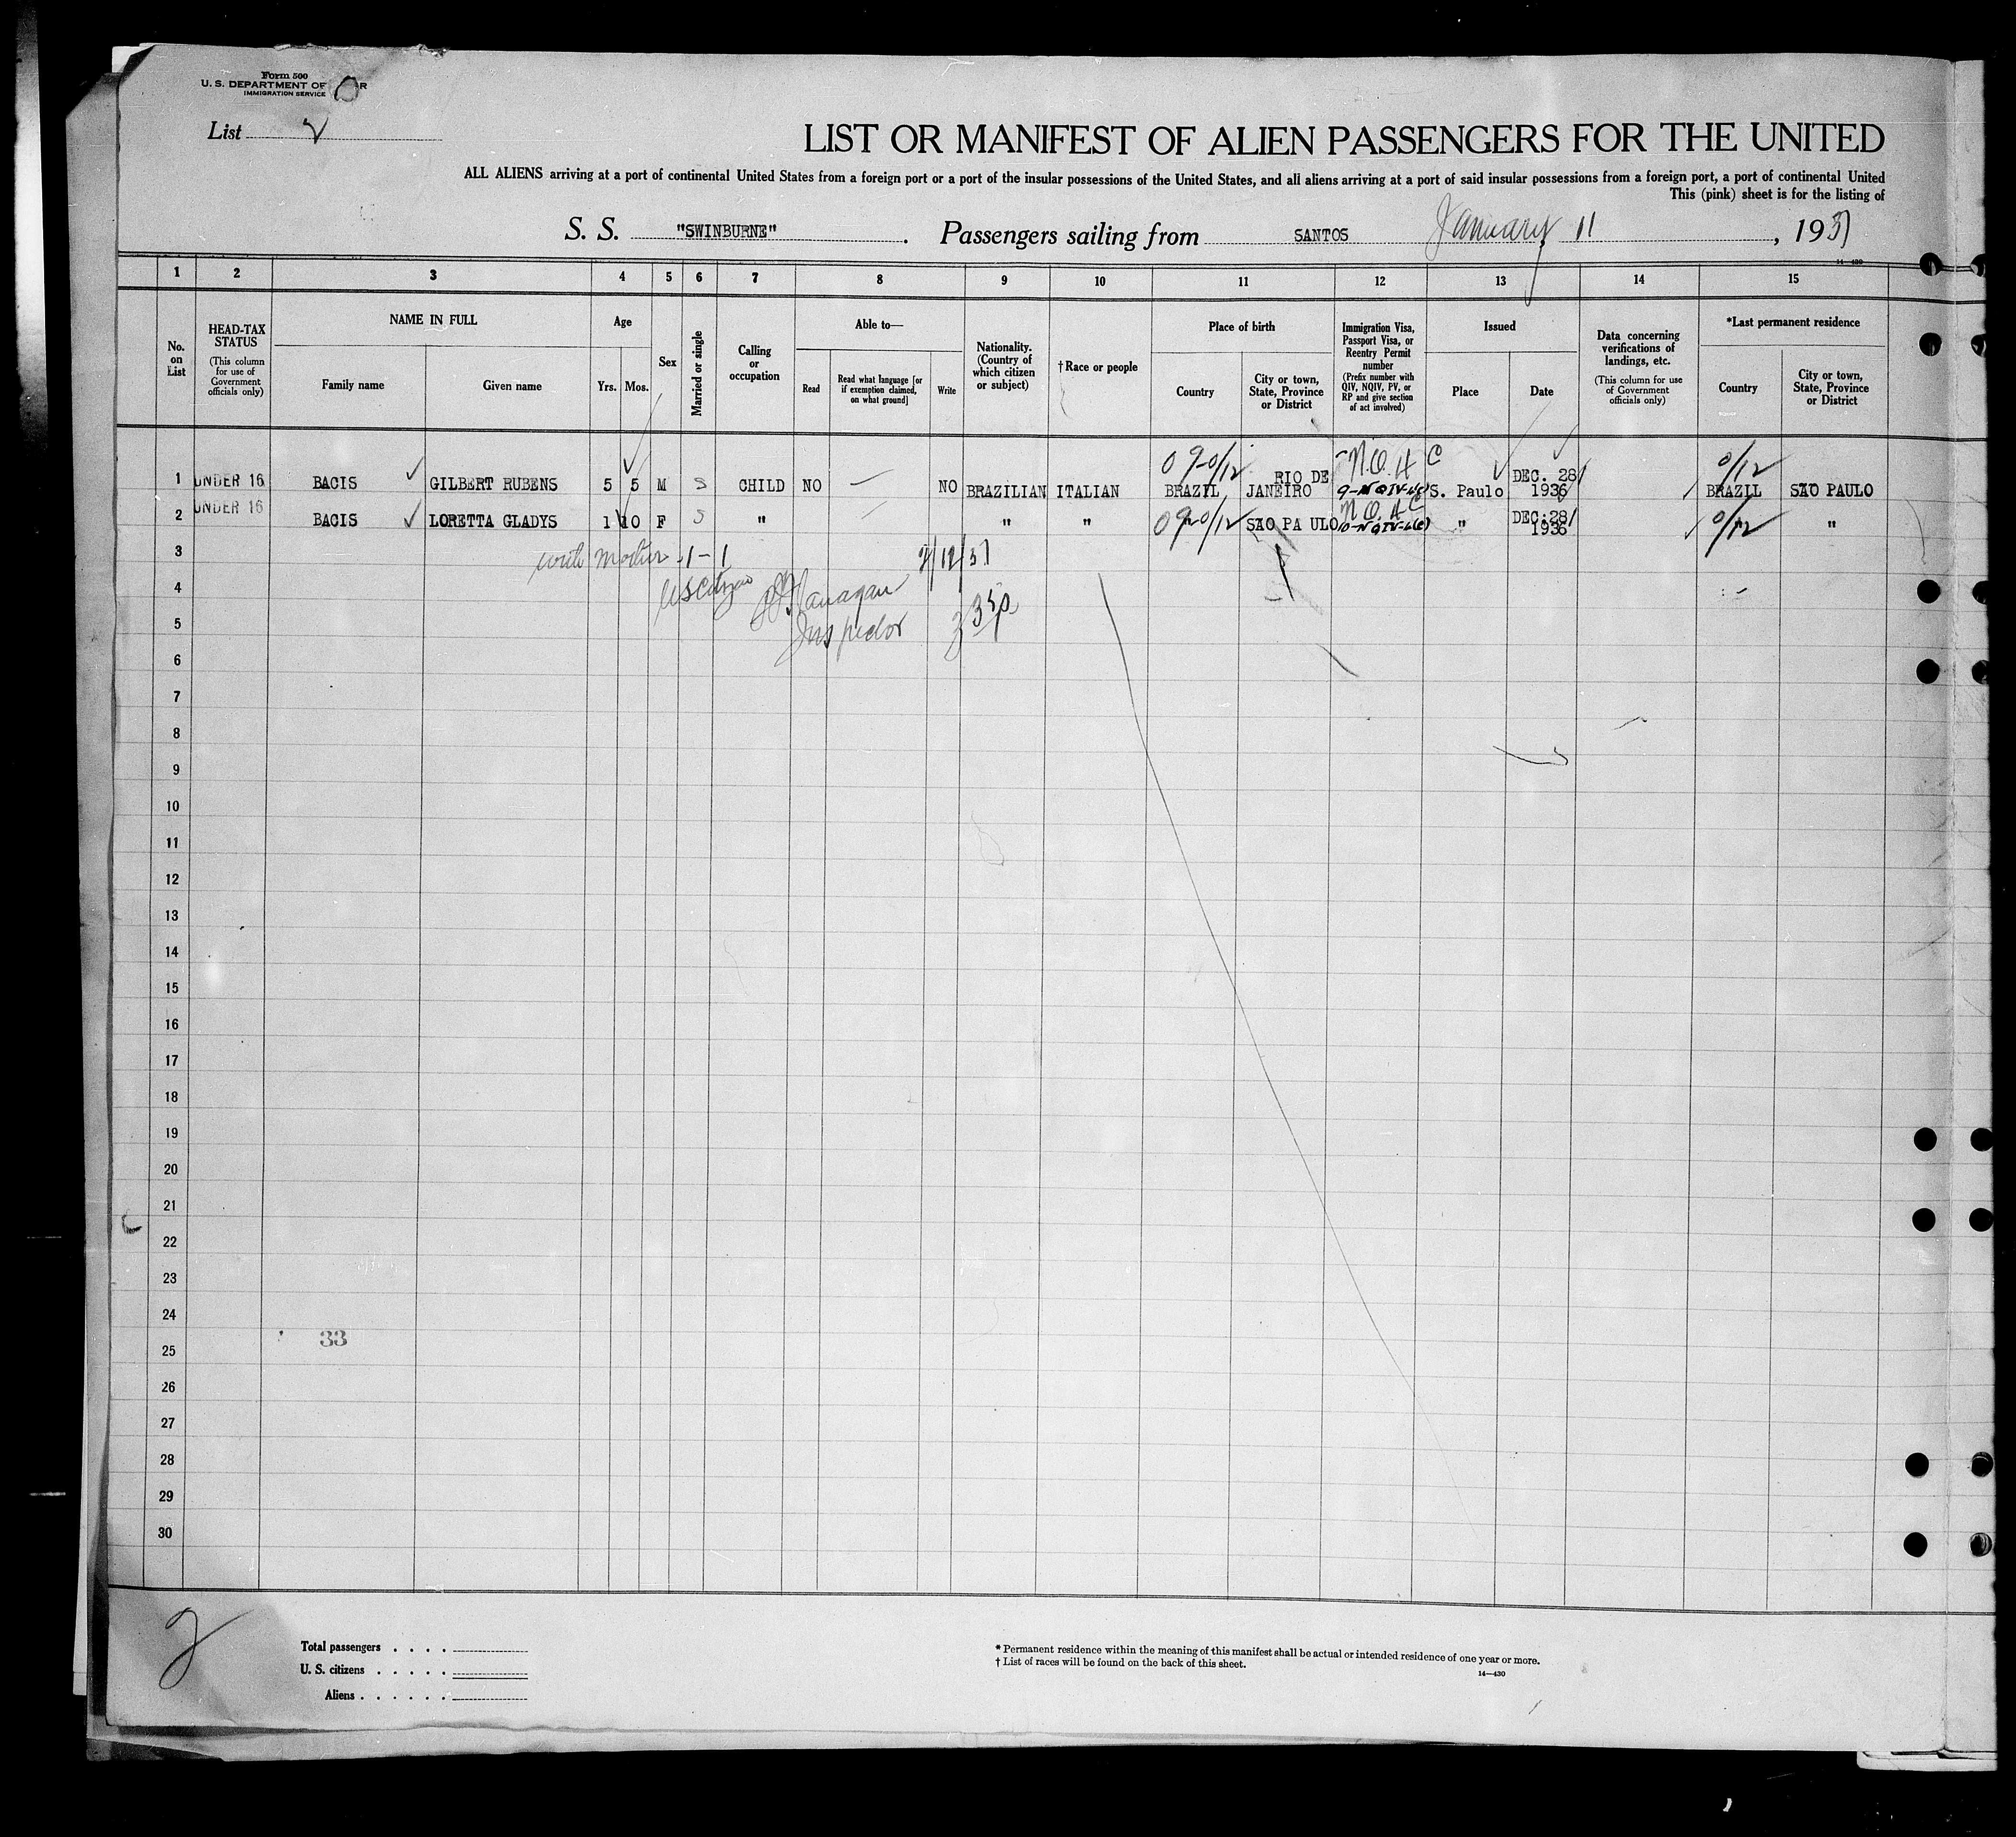 Form 500
U. S. DEPARTMENT OF
IMMIGRATION SERVICE
List 2
LIST OR MANIFEST OF ALIEN PASSENGERS FOR THE UNITED
ALL ALIENS arriving at a port of continental United States from a foreign port or a port of the insular possessions of the United States, and all aliens arriving at a port of said insular possessions from a foreign port, a port of continental United
This (pink) sheet is for the listing of
S. S. "SWINBURNE". Passengers sailing from SANTOS January 11, 1937
14—430
1 2 3 4 5 6 7 8 9 10 11 12 13 14 15
No. on List
HEAD-TAX STATUS (This column for use of Government officials only)
NAME IN FULL
Family name
Given name
Age
Yrs. Mos.
Sex
Married or single
Calling or occupation
Able to—
Read
Read what language [or if exemption claimed, on what ground]
Write
Nationality. (Country of which citizen or subject)
† Race or people
Place of birth
Country
City or town, State, Province or District
Immigration Visa, Passport Visa, or Reentry Permit number (Prefix number with QIV, NQIV, PV, or RP and give section of act involved)
Issued
Place
Date
Data concerning verifications of landings, etc. (This column for use of Government officials only)
*Last permanent residence
Country
City or town, State, Province or District
1 UNDER 16 BACIS GILBERT RUBENS 5 5 M S CHILD NO — NO BRAZILIAN ITALIAN BRAZIL RIO DE JANEIRO S. Paulo DEC. 28 1936 0/12 BRAZIL SÃO PAULO
2 UNDER 16 BACIS LORETTA GLADYS 1 10 F S " " " SÃO PAULO " DEC. 28 1936 0/12 " "
3 with mother 1-1 2/12/37
4 US Citizen Flanagan
5 Inspector
6
7
8
9
10
11
12
13
14
15
16
17
18
19
20
21
22
23
24
33
25
26
27
28
29
30
2
Total passengers . . . .
U. S. citizens . . . . .
Aliens . . . . . .
* Permanent residence within the meaning of this manifest shall be actual or intended residence of one year or more.
† List of races will be found on the back of this sheet.
14—430